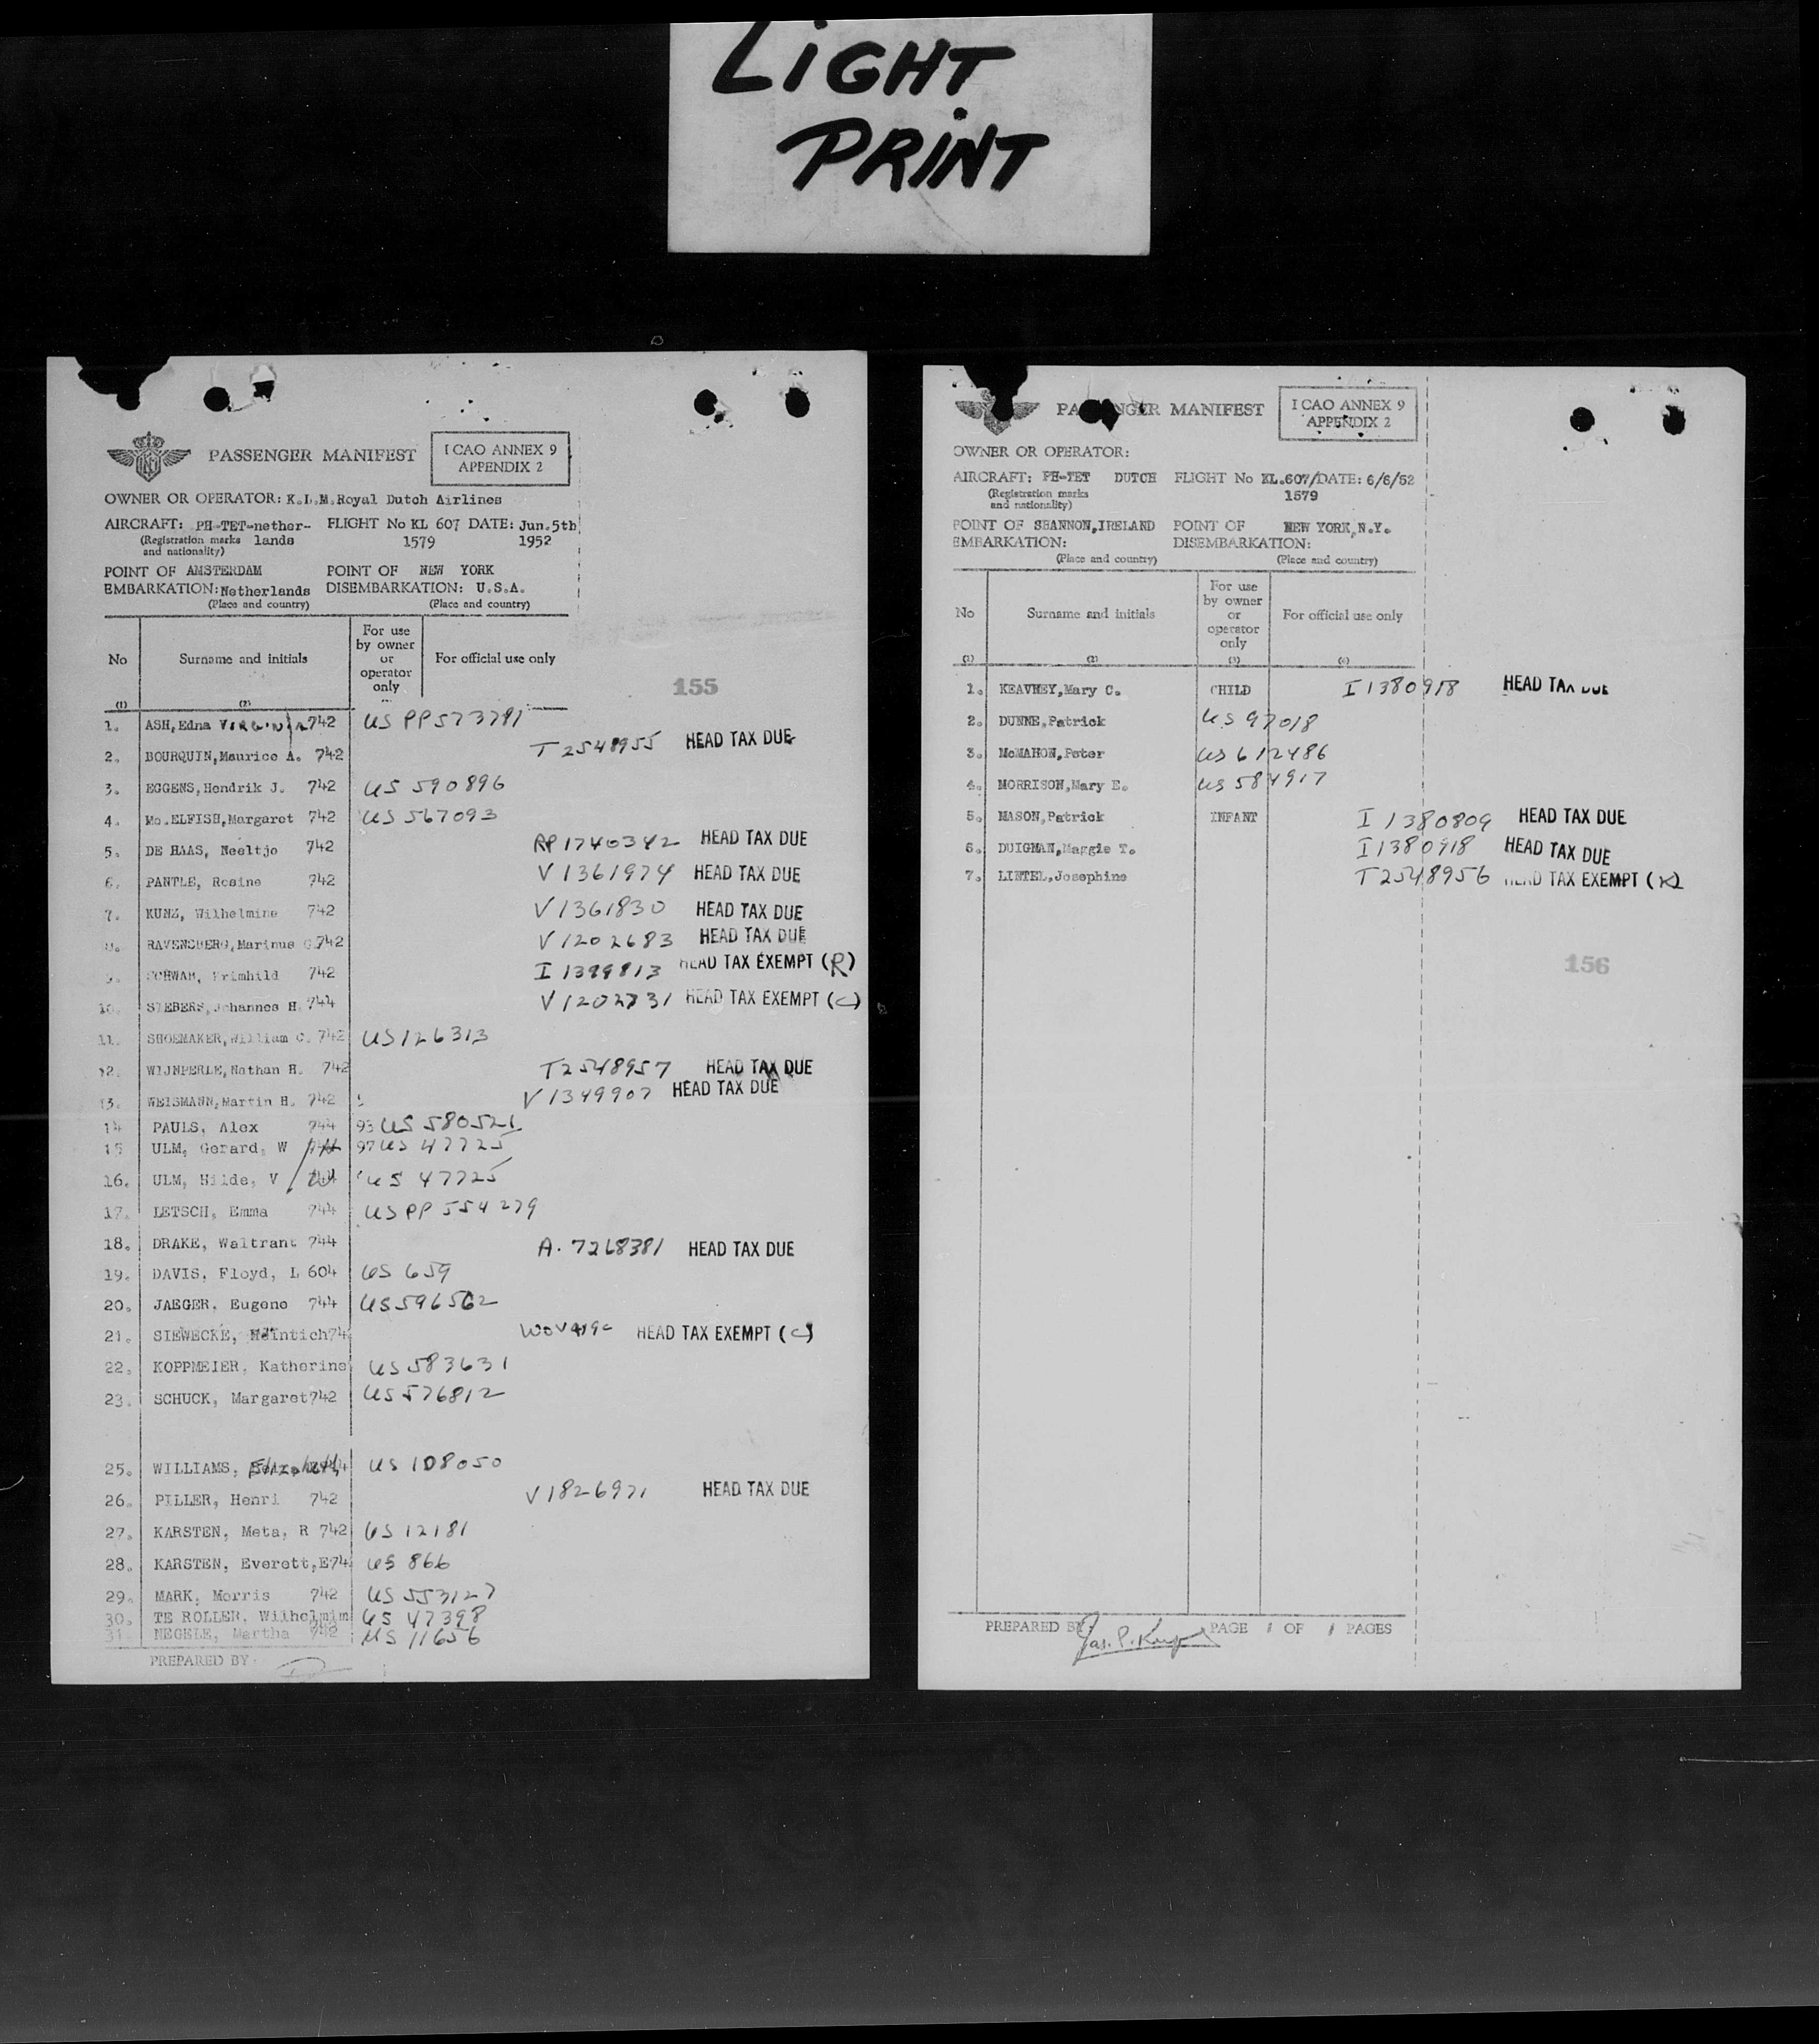 LIGHT
PRINT
PASSENGER MANIFEST
I CAO ANNEX 9
APPENDIX 2
OWNER OR OPERATOR: K.L.M. Royal Dutch Airlines
AIRCRAFT: PH-TET-nether- FLIGHT No KL 607 DATE: Jun.5th
(Registration marks lands 1579 1952
and nationality)
POINT OF AMSTERDAM POINT OF NEW YORK
EMBARKATION: Netherlands DISEMBARKATION: U.S.A.
(Place and country) (Place and country)
No Surname and initials For use by owner or operator only For official use only
(1) (2)
155
1. ASH, Edna VIRGINIA 742 US PP573781
2. BOURQUIN, Maurice A. 742 T 2548955 HEAD TAX DUE
3. EGGENS, Hendrik J. 742 US 590896
4. Mc.ELFISH, Margaret 742 US 567093
5. DE HAAS, Neeltje 742 RP 1740342 HEAD TAX DUE
6. PANTLE, Rosine 742 V 1361974 HEAD TAX DUE
7. KUNZ, Wilhelmine 742 V 1361830 HEAD TAX DUE
8. RAVENSBERG, Marinus G. 742 V 1202683 HEAD TAX DUE
9. SCHWAB, 742 I 1399813 HEAD TAX EXEMPT (R)
10. SIEBERS, Johannes H. 744 V 1202731 HEAD TAX EXEMPT (C)
11. SHOEMAKER, William C. 742 US 126313
12. WIJNPERLE, Nathan H. 742 T 2548957 HEAD TAX DUE
13. WEISMANN, Martin H. 742 V 1349907 HEAD TAX DUE
14 PAULS, Alex 744 93 US 580521
15 ULM, Gerard, W 97 US 47725
16. ULM, Hilde, V US 47725
17. LETSCH, Emma 744 US PP 554279
18. DRAKE, Waltrant 744 A. 7268381 HEAD TAX DUE
19. DAVIS, Floyd, L 604 US 659
20. JAEGER, Eugene 744 US 596562
21. SIEWECKE, Heintich 74 HEAD TAX EXEMPT (C)
22. KOPPMEIER, Katherine US 583631
23. SCHUCK, Margaret 742 US 576812
25. WILLIAMS, Elizabeth US 108050
26. PILLER, Henri 742 V 1826971 HEAD TAX DUE
27. KARSTEN, Meta, R 742 US 12181
28. KARSTEN, Everett, E 74 US 866
29. MARK, Morris 742 US 553127
30. TE ROLLER, Wilhelmim US 47398
31. NEGELE, Martha 742 US 11656
PREPARED BY
PASSENGER MANIFEST
I CAO ANNEX 9
APPENDIX 2
OWNER OR OPERATOR:
AIRCRAFT: PH-TET DUTCH FLIGHT No KL.607/DATE: 6/6/52
(Registration marks 1579
and nationality)
POINT OF SHANNON, IRELAND POINT OF NEW YORK, N.Y.
EMBARKATION: DISEMBARKATION:
(Place and country) (Place and country)
No Surname and initials For use by owner or operator only For official use only
(1) (2) (3) (4)
1. KEAVNEY, Mary C. CHILD I 1380918 HEAD TAX DUE
2. DUNNE, Patrick US 97018
3. McMAHON, Peter US 612486
4. MORRISON, Mary E. US 584917
5. MASON, Patrick INFANT I 1380809 HEAD TAX DUE
6. DUIGNAN, Maggie T. I 1380918 HEAD TAX DUE
7. LIETEL, Josephine T 2548956 HEAD TAX EXEMPT (X)
156
PREPARED BY PAGE 1 OF 1 PAGES